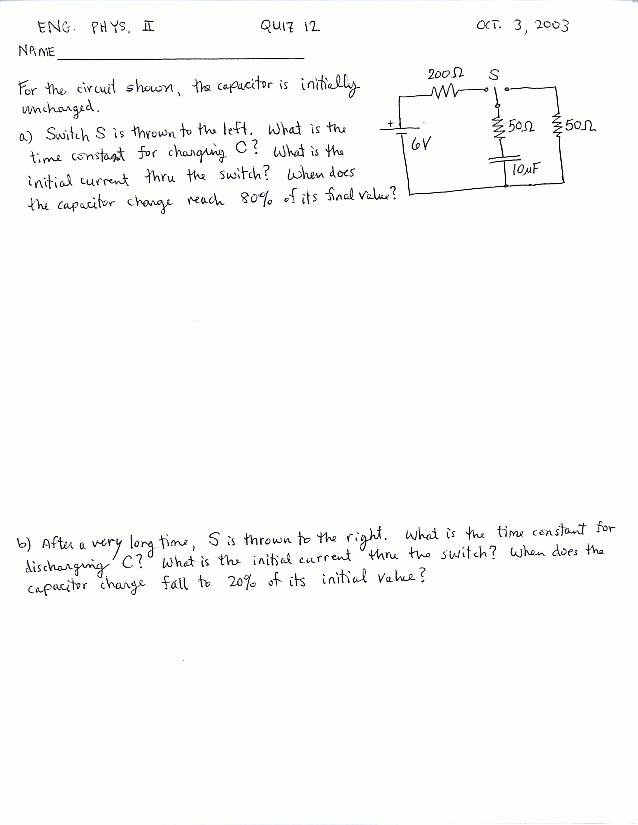 ENG. PHYS. II QUIZ 12 OCT. 3, 2003
NAME
For the circuit shown, the capacitor is initially
uncharged.
a) Switch S is thrown to the left. What is the
time constant for charging C? What is the
initial current thru the switch? When does
the capacitor charge reach 80% of its final value?
200Ω S
+
6V
50Ω 50Ω
10μF
b) After a very long time, S is thrown to the right. What is the time constant for
discharging C? What is the initial current thru the switch? When does the
capacitor charge fall to 20% of its initial value?